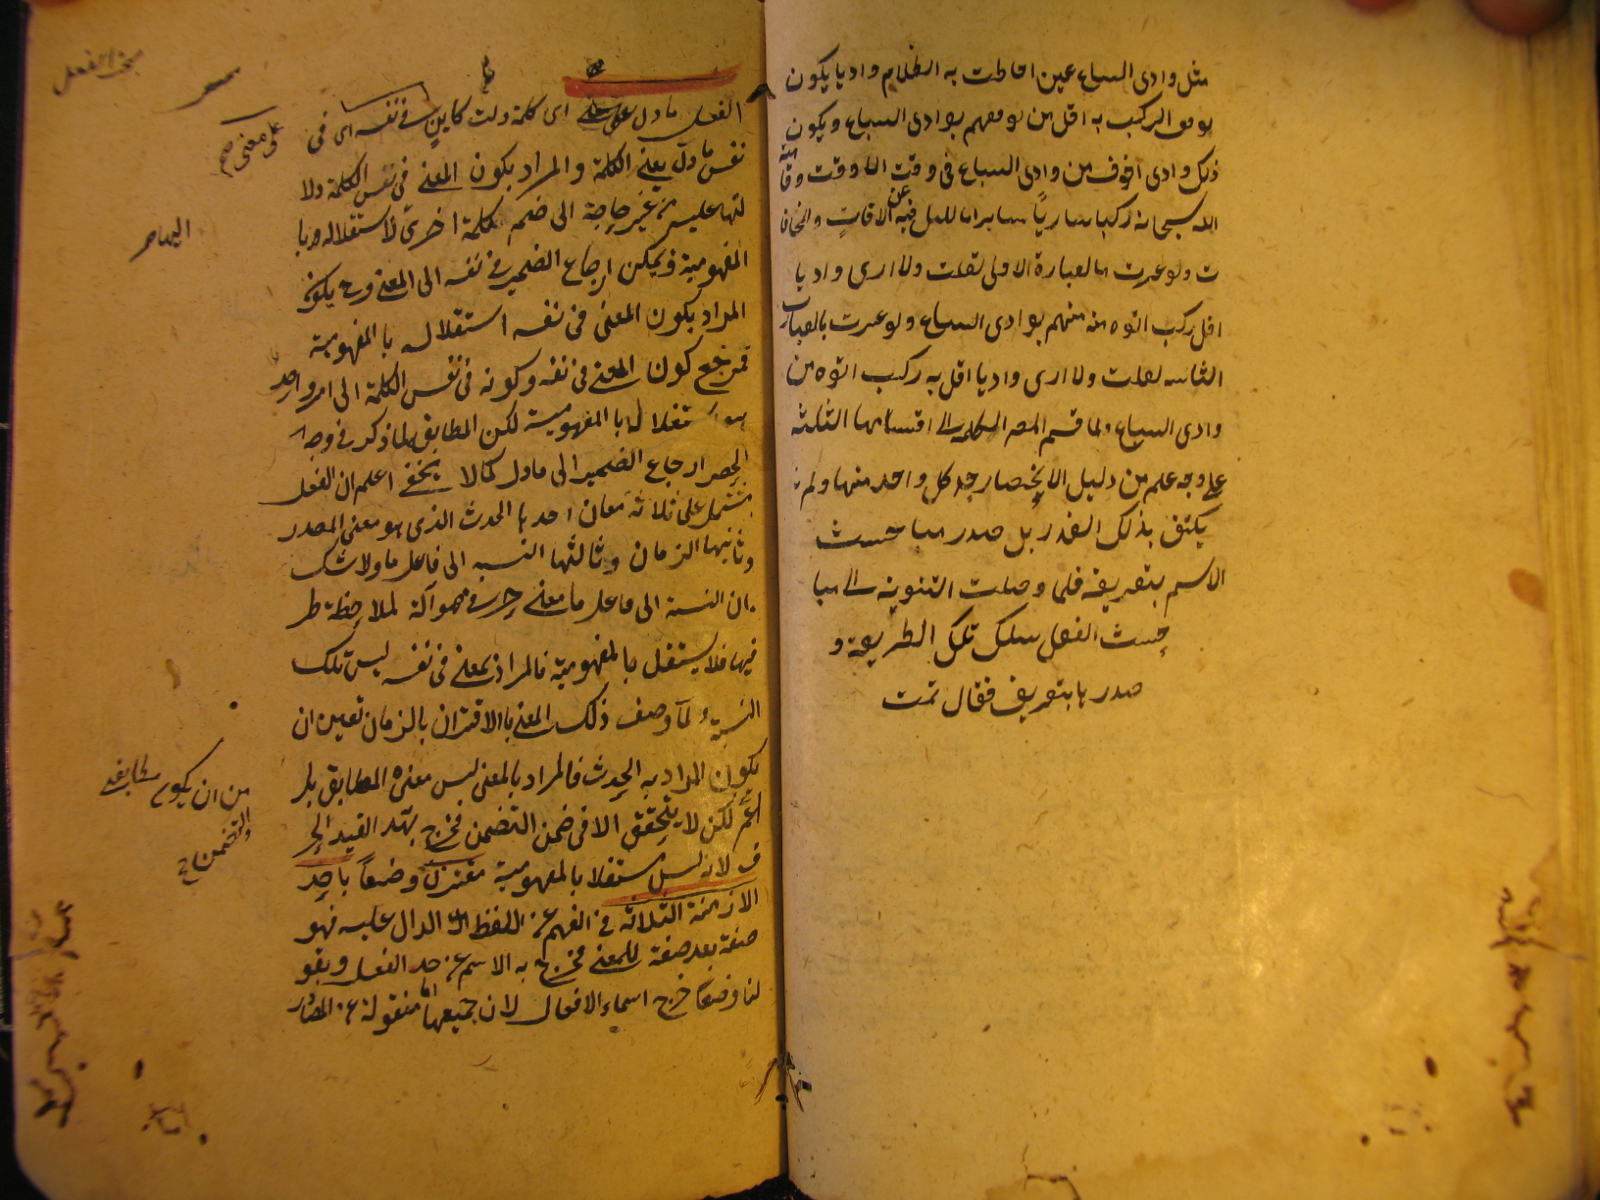 مثل وادى السباع حين احاطت به الظلام واديا يكون
توقف الركب به اقل من توقفهم بوادى السباع ويكون
ذلك وادى اخوف من وادى السباع فى وقت الا وقت وقاية
الله سبحانه ركبا ساريا سائرا بالليل فيه عن الافات والمخافا
ت ولو عبرت بالعبارة الاولى لقلت ولا ارى واديا
اقل ركب اتوه منه منهم بوادى السباع ولو عبرت بالعبارت
الثانيه لقلت ولا ارى واديا اقل به ركب اتوه من
وادى السباع ولما قسم المصر الكلمه الى اقسامها الثلثه
على وجه علم من دليل الانحصار حد كل واحد منها ولم
يكتف بذلك القدر بل صدر مباحث
الاسم بتعريفه فلما وصلت التنوينه الى مبا
حث الفعل سلك تلك الطريقة و
صدرها بتعريف فقال تمت
بحث الفعل
الفعل ما دل على اى كلمة دلت كاين فى نفسه اى فى
على معنى صح
نفس ما دل يعنى الكلمة والمراد بكون المعنى فى نفس الكلمة دلا
لتها عليه من غير حاجة الى ضم كلمة اخرى لاستقلاله با
المفهومية ويمكن ارجاع الضمير فى نفسه الى المعنى وح يكون
المراد بكون المعنى فى نفسه استقلاله بالمفهومية
فمرجع كون المعنى فى نفسه وكونه فى نفس الكلمة الى امر واحد
هو استقلاله بالمفهومية لكن المطابق لما ذكر فى وجه
الحصر ارجاع الضمير الى ما دل كما لا يخفى اعلم ان الفعل
مشتمل على ثلاثة معان احدها الحدث الذى هو معنى المصدر
وثانيها الزمان وثالثها النسبه الى فاعل ما ولا شك
ان النسبة الى فاعل ما معنى حرفى هو آلة لملاحظة طر
فيها فلا يستقل بالمفهومية فالمراد بمعنى فى نفسه ليس تلك
النسبة ولما وصف ذلك المعنى بالاقتران بالزمان تعين ان
يكون المراد به الحدث فالمراد بالمعنى ليس معناه المطابق بل
اعم لكن لا يتحقق الا فى ضمن التضمن فخرج بهذا القيد الحر
من ان يكون مطابقى
والتضمن
ف لانه ليس مستقلا بالمفهومية مقترن وضعا باحد
الازمنة الثلاثه فى الفهم عن اللفظ الدال عليه فهو
صفة بعد صفة للمعنى فخرج به الاسم عن حد الفعل وبقو
لنا وضعا خرج اسماء الافعال لان جميعها اما منقولة عن المصادر